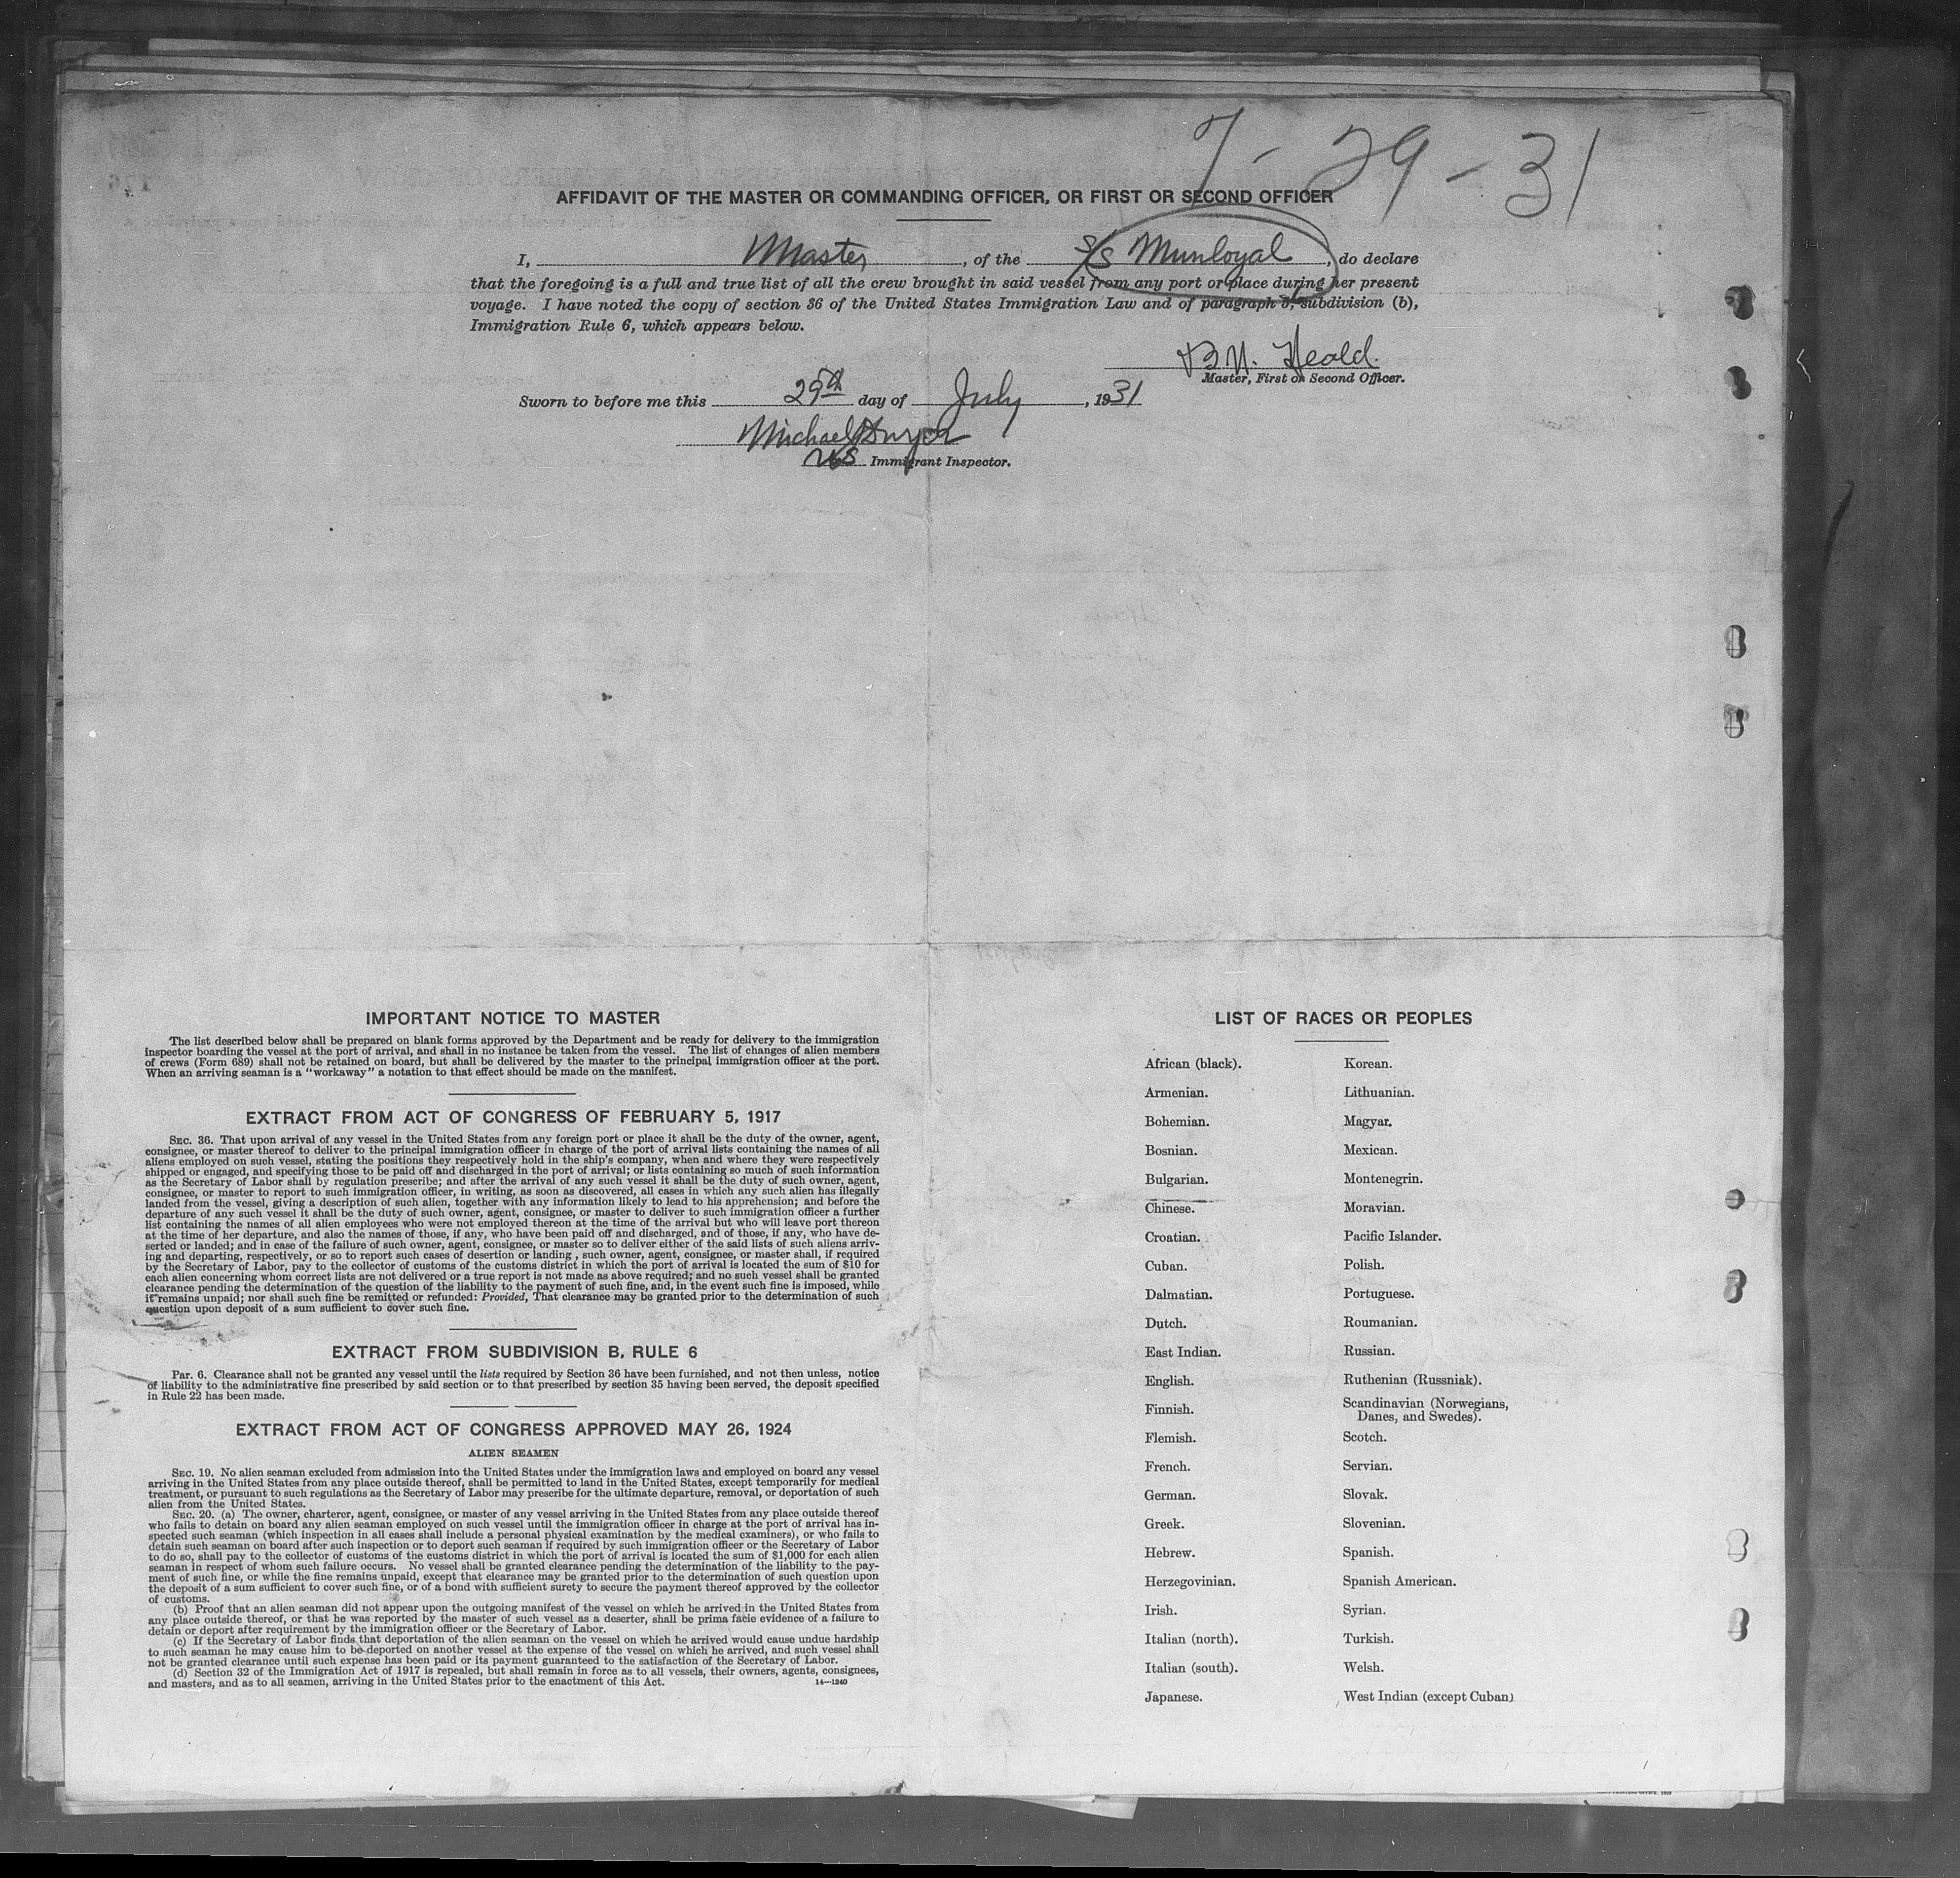 7-29-31
AFFIDAVIT OF THE MASTER OR COMMANDING OFFICER, OR FIRST OR SECOND OFFICER
I, Master, of the S/S Munloyal, do declare
that the foregoing is a full and true list of all the crew brought in said vessel from any port or place during her present
voyage. I have noted the copy of section 36 of the United States Immigration Law and of paragraph 5, subdivision (b),
Immigration Rule 6, which appears below.
B. N. Heald.
Master, First or Second Officer.
Sworn to before me this 29th day of July, 1931
Michael Dwyer
US Immigrant Inspector.
IMPORTANT NOTICE TO MASTER
The list described below shall be prepared on blank forms approved by the Department and be ready for delivery to the immigration
inspector boarding the vessel at the port of arrival, and shall in no instance be taken from the vessel. The list of changes of alien members
of crews (Form 689) shall not be retained on board, but shall be delivered by the master to the principal immigration officer at the port.
When an arriving seaman is a "workaway" a notation to that effect should be made on the manifest.
EXTRACT FROM ACT OF CONGRESS OF FEBRUARY 5, 1917
SEC. 36. That upon arrival of any vessel in the United States from any foreign port or place it shall be the duty of the owner, agent,
consignee, or master thereof to deliver to the principal immigration officer in charge of the port of arrival lists containing the names of all
aliens employed on such vessel, stating the positions they respectively hold in the ship's company, when and where they were respectively
shipped or engaged, and specifying those to be paid off and discharged in the port of arrival; or lists containing so much of such information
as the Secretary of Labor shall by regulation prescribe; and after the arrival of any such vessel it shall be the duty of such owner, agent,
consignee, or master to report to such immigration officer, in writing, as soon as discovered, all cases in which any such alien has illegally
landed from the vessel, giving a description of such alien, together with any information likely to lead to his apprehension; and before the
departure of any such vessel it shall be the duty of such owner, agent, consignee, or master to deliver to such immigration officer a further
list containing the names of all alien employees who were not employed thereon at the time of the arrival but who will leave port thereon
at the time of her departure, and also the names of those, if any, who have been paid off and discharged, and of those, if any, who have de-
serted or landed; and in case of the failure of such owner, agent, consignee, or master so to deliver either of the said lists of such aliens arriv-
ing and departing, respectively, or so to report such cases of desertion or landing , such owner, agent, consignee, or master shall, if required
by the Secretary of Labor, pay to the collector of customs of the customs district in which the port of arrival is located the sum of $10 for
each alien concerning whom correct lists are not delivered or a true report is not made as above required; and no such vessel shall be granted
clearance pending the determination of the question of the liability to the payment of such fine, and, in the event such fine is imposed, while
it remains unpaid; nor shall such fine be remitted or refunded: Provided, That clearance may be granted prior to the determination of such
question upon deposit of a sum sufficient to cover such fine.
EXTRACT FROM SUBDIVISION B, RULE 6
Par. 6. Clearance shall not be granted any vessel until the lists required by Section 36 have been furnished, and not then unless, notice
of liability to the administrative fine prescribed by said section or to that prescribed by section 35 having been served, the deposit specified
in Rule 22 has been made.
EXTRACT FROM ACT OF CONGRESS APPROVED MAY 26, 1924
ALIEN SEAMEN
SEC. 19. No alien seaman excluded from admission into the United States under the immigration laws and employed on board any vessel
arriving in the United States from any place outside thereof, shall be permitted to land in the United States, except temporarily for medical
treatment, or pursuant to such regulations as the Secretary of Labor may prescribe for the ultimate departure, removal, or deportation of such
alien from the United States.
SEC. 20. (a) The owner, charterer, agent, consignee, or master of any vessel arriving in the United States from any place outside thereof
who fails to detain on board any alien seaman employed on such vessel until the immigration officer in charge at the port of arrival has in-
spected such seaman (which inspection in all cases shall include a personal physical examination by the medical examiners), or who fails to
detain such seaman on board after such inspection or to deport such seaman if required by such immigration officer or the Secretary of Labor
to do so, shall pay to the collector of customs of the customs district in which the port of arrival is located the sum of $1,000 for each alien
seaman in respect of whom such failure occurs. No vessel shall be granted clearance pending the determination of the liability to the pay-
ment of such fine, or while the fine remains unpaid, except that clearance may be granted prior to the determination of such question upon
the deposit of a sum sufficient to cover such fine, or of a bond with sufficient surety to secure the payment thereof approved by the collector
of customs.
(b) Proof that an alien seaman did not appear upon the outgoing manifest of the vessel on which he arrived in the United States from
any place outside thereof, or that he was reported by the master of such vessel as a deserter, shall be prima facie evidence of a failure to
detain or deport after requirement by the immigration officer or the Secretary of Labor.
(c) If the Secretary of Labor finds that deportation of the alien seaman on the vessel on which he arrived would cause undue hardship
to such seaman he may cause him to be deported on another vessel at the expense of the vessel on which he arrived, and such vessel shall
not be granted clearance until such expense has been paid or its payment guaranteed to the satisfaction of the Secretary of Labor.
(d) Section 32 of the Immigration Act of 1917 is repealed, but shall remain in force as to all vessels, their owners, agents, consignees,
and masters, and as to all seamen, arriving in the United States prior to the enactment of this Act.
14—1240
LIST OF RACES OR PEOPLES
African (black).
Armenian.
Bohemian.
Bosnian.
Bulgarian.
Chinese.
Croatian.
Cuban.
Dalmatian.
Dutch.
East Indian.
English.
Finnish.
Flemish.
French.
German.
Greek.
Hebrew.
Herzegovinian.
Irish.
Italian (north).
Italian (south).
Japanese.
Korean.
Lithuanian.
Magyar.
Mexican.
Montenegrin.
Moravian.
Pacific Islander.
Polish.
Portuguese.
Roumanian.
Russian.
Ruthenian (Russniak).
Scandinavian (Norwegians,
Danes, and Swedes).
Scotch.
Servian.
Slovak.
Slovenian.
Spanish.
Spanish American.
Syrian.
Turkish.
Welsh.
West Indian (except Cuban)